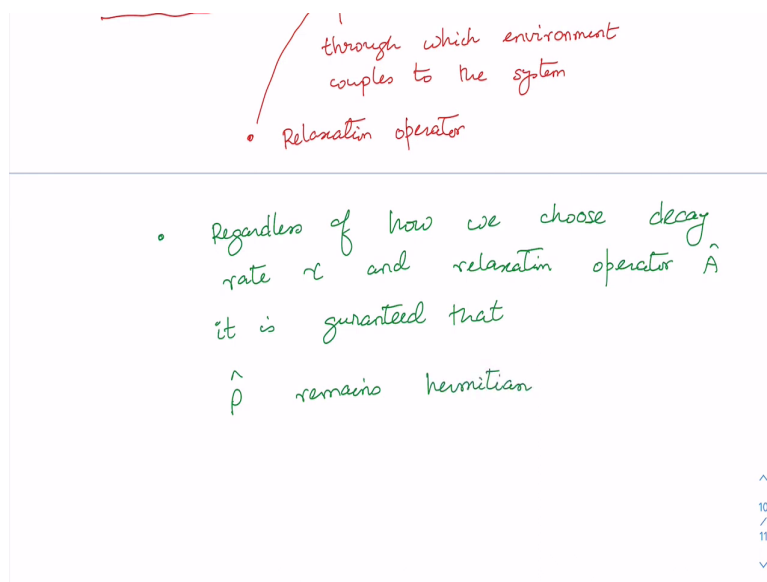 through which environment
couples to the system
• Relaxatin operator
• Regardless of how we choose decay
rate r and relaxatin operator Â
it is guranteed that
ρ̂ remains hermitian
10
/
11